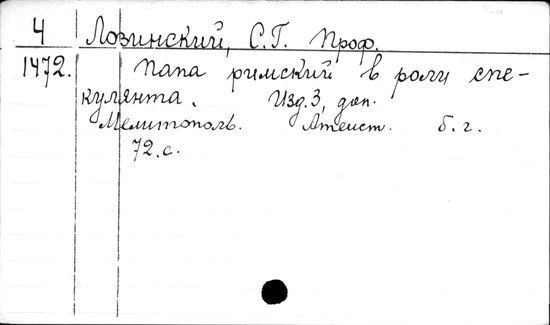 4 Лозинский, С.Г. Проф.
1472. Папа римский в роли спе-
кулянта. Изд.3, доп.
Мелитополь. Атеист. б.г.
72.с.